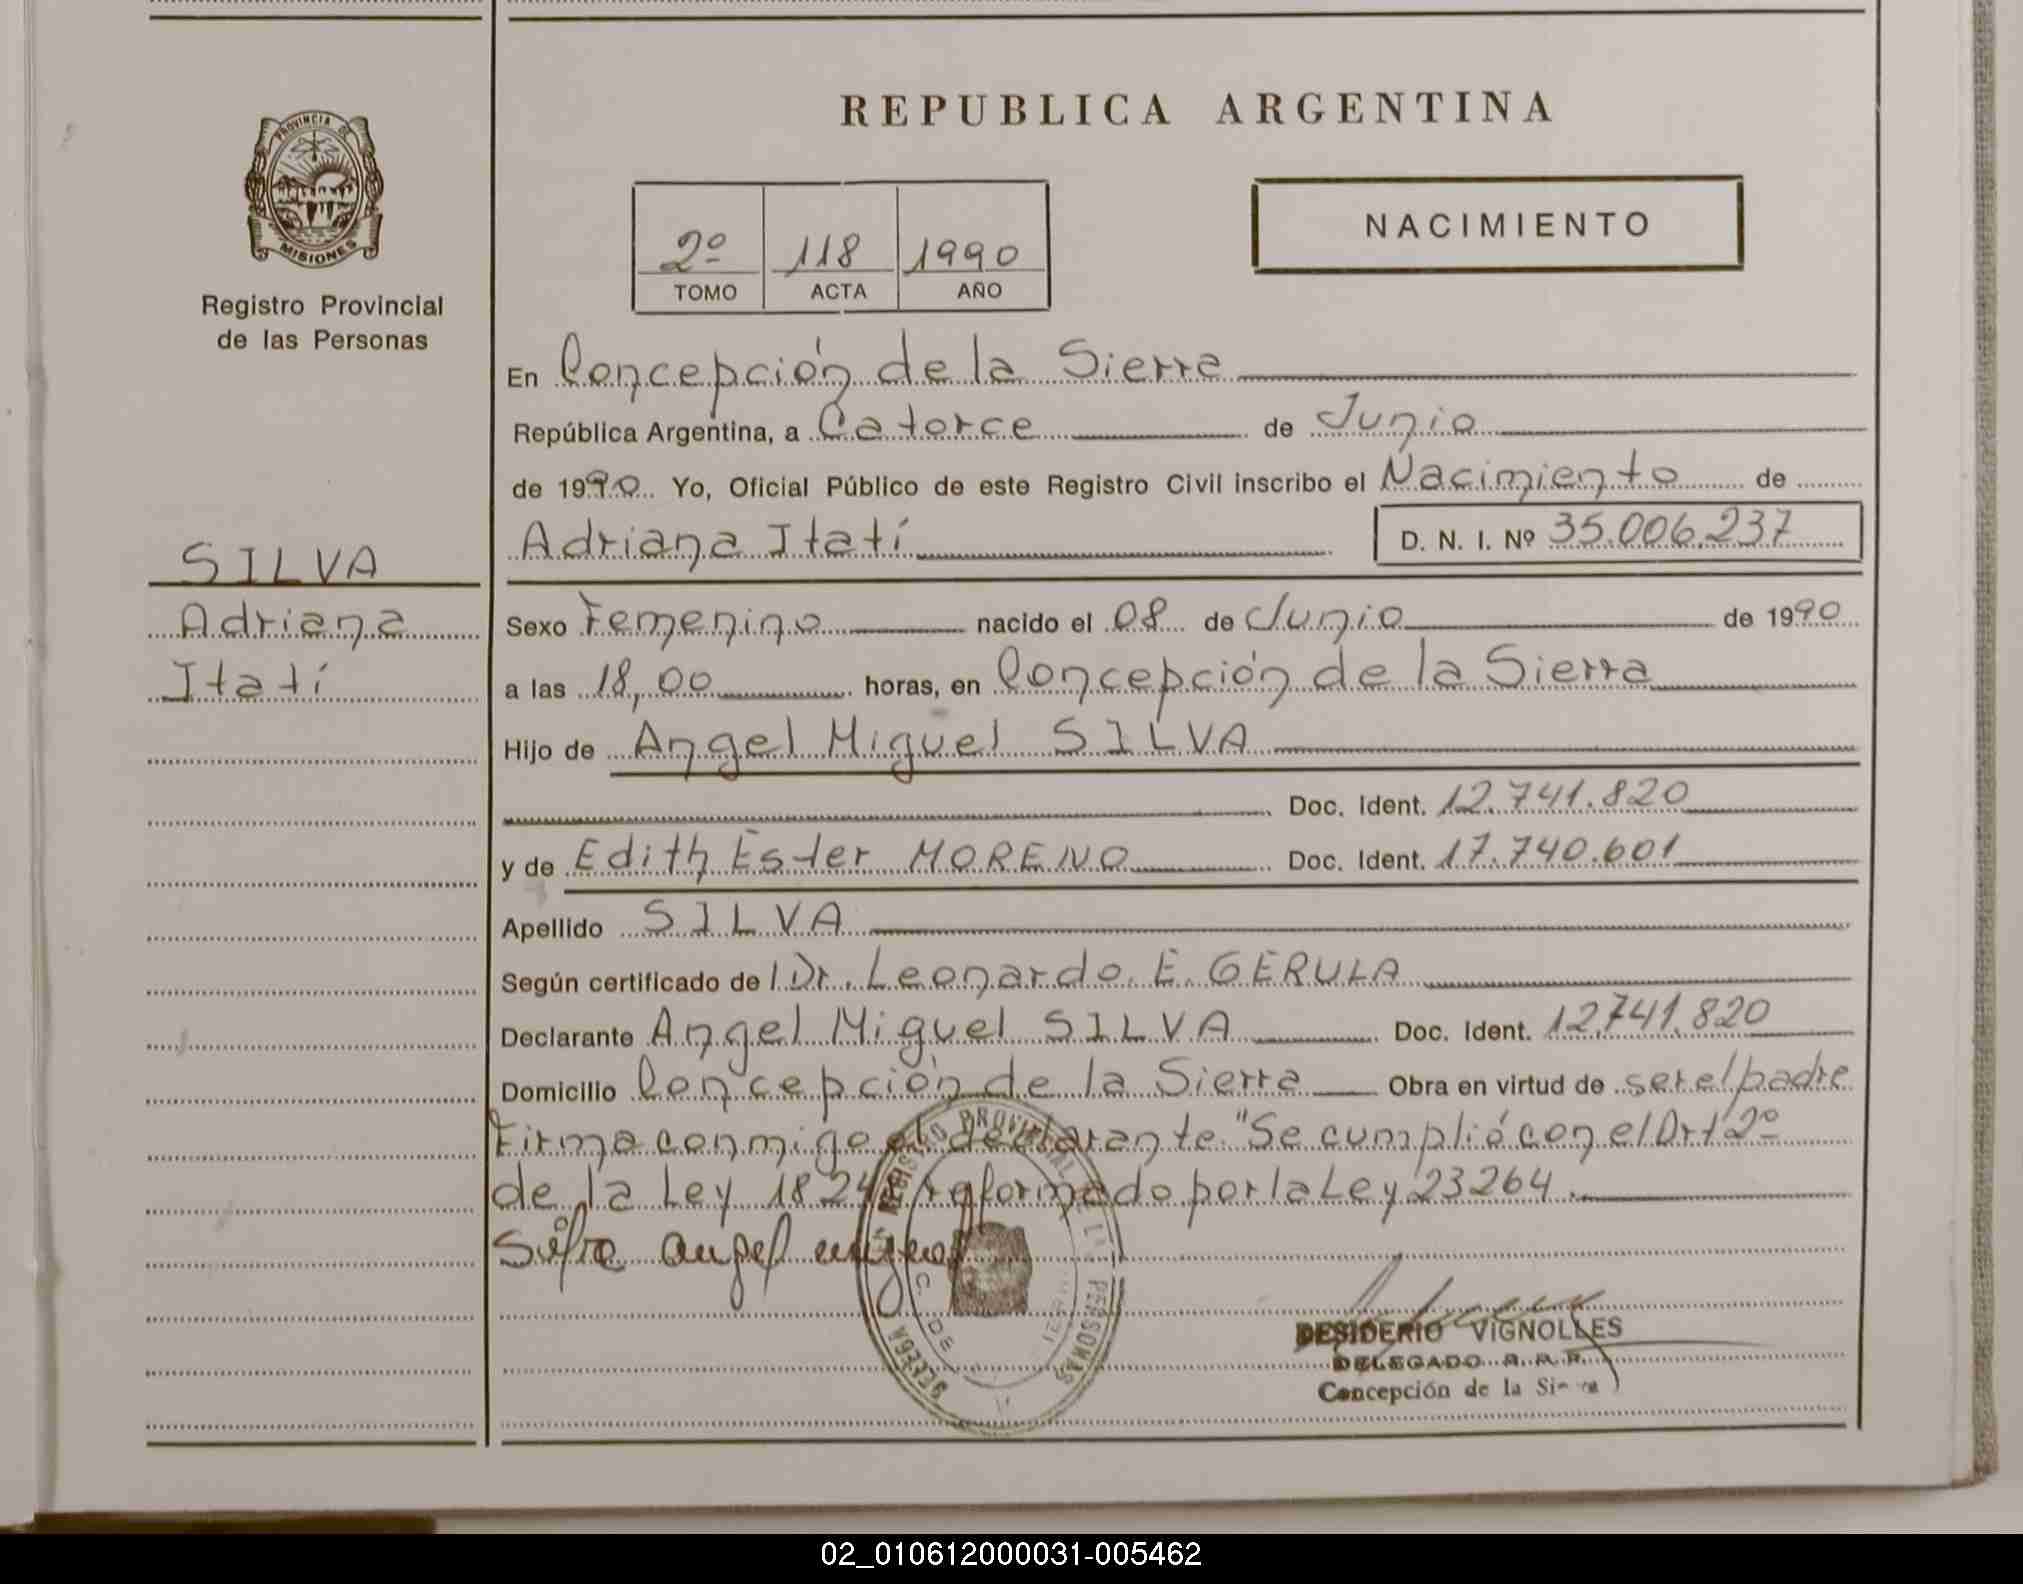 REPUBLICA ARGENTINA
PROVINCIA DE
MISIONES
Registro Provincial
de las Personas
2º 118 1990
TOMO ACTA AÑO
NACIMIENTO
En Concepción de la Sierra
República Argentina, a Catorce de Junio
de 1990 Yo, Oficial Público de este Registro Civil inscribo el Nacimiento de
Adriana Itatí D. N. I. Nº 35.006.237
SILVA
Adriana
Itatí
Sexo Femenino nacido el 08 de Junio de 1990
a las 18,00 horas, en Concepción de la Sierra
Hijo de Angel Miguel SILVA
Doc. Ident. 12.741.820
y de Edith Ester MORENO Doc. Ident. 17.740.601
Apellido SILVA
Según certificado de Dr. Leonardo E. GERULA
Declarante Angel Miguel SILVA Doc. Ident. 12741.820
Domicilio Concepción de la Sierra Obra en virtud de ser el padre
Firma conmigo el declarante "Se cumplió con el Art 2º
de la Ley reformado por la Ley 23264.
Silva angel miguel
REGISTRO PROVINCIAL DE LAS PERSONAS
C. DE
DESIDERIO VIGNOLLES
DELEGADO R. P. P.
Concepción de la
02_010612000031-005462